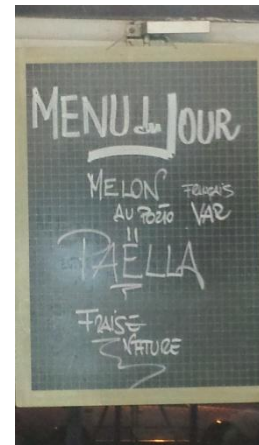 MENU du JOUR
MELON FRANÇAIS
AU PORTO VAR
PAËLLA
FRAISE
NATURE